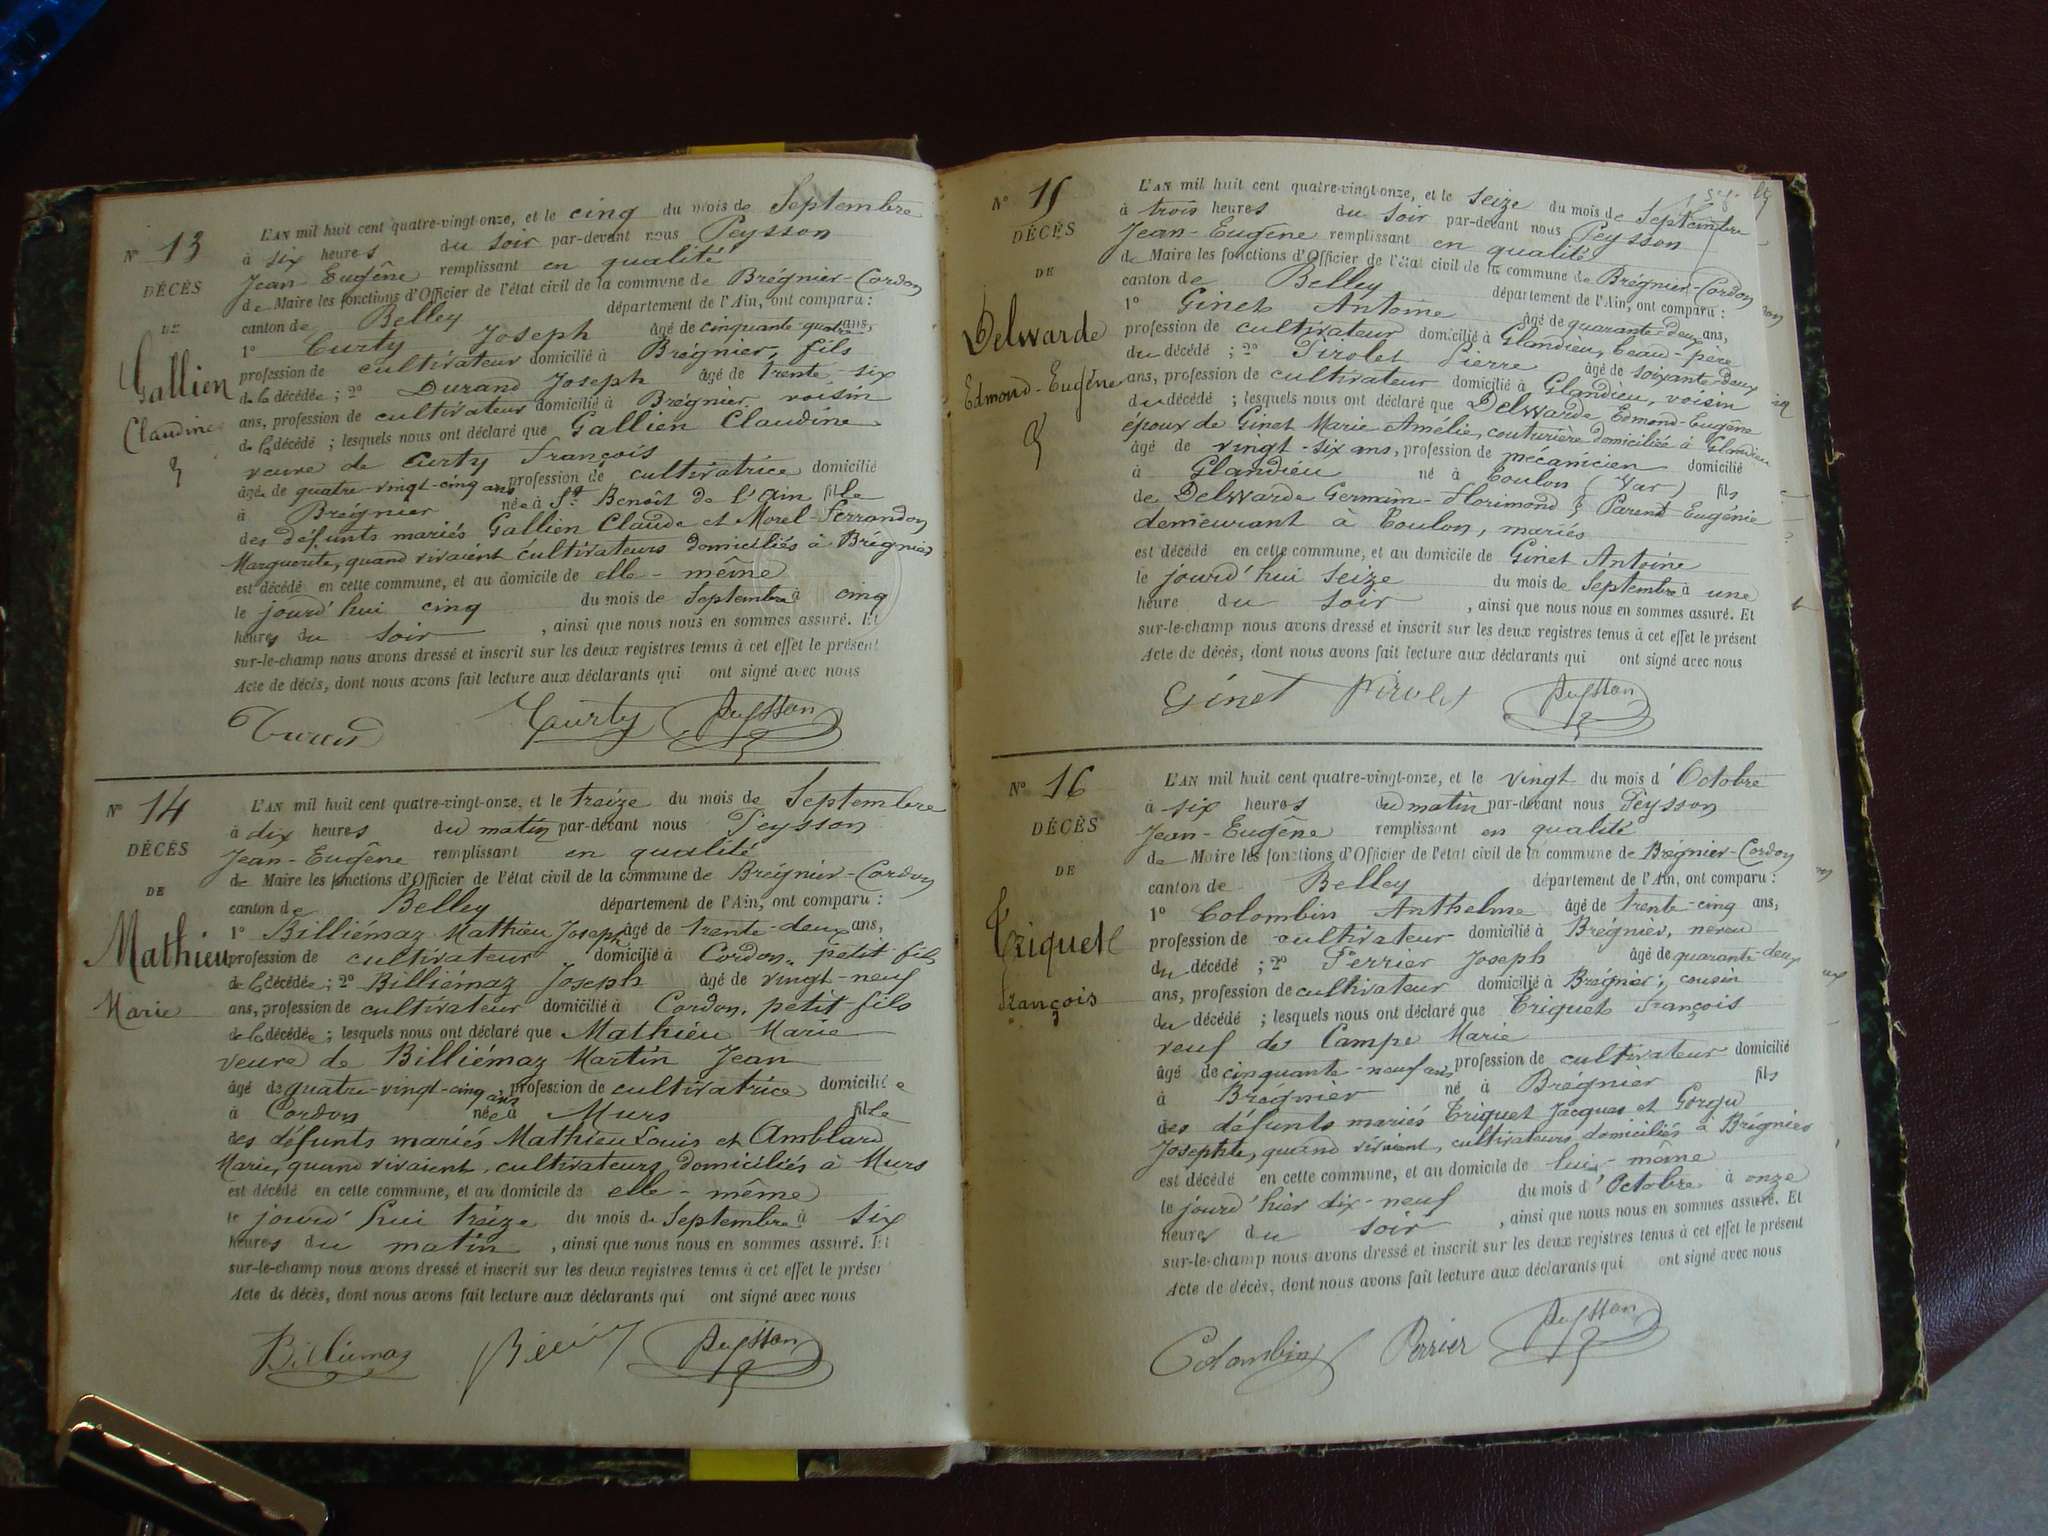 N° 13
DÉCÈS
DE
Gallien
Claudine
L'AN mil huit cent quatre-vingt-onze, et le cinq du mois de Septembre
à six heures du soir par-devant nous Peysson
Jean Eugêne remplissant en qualité
de Maire les fonctions d'Officier de l'état civil de la commune de Brégnier-Cordon
canton de Belley département de l'Ain, ont comparu :
1° Curty Joseph âgé de cinquante-quatre ans,
profession de cultivateur domicilié à Brégnier, fils
de la décédée ; 2° Durand Joseph âgé de trente-six
ans, profession de cultivateur domicilié à Brégnier, voisin
de la décédé ; lesquels nous ont déclaré que Gallien Claudine
veuve de Curty François
âgée de quatre-vingt-cinq ans profession de cultivatrice domicilié
à Brégnier née à St Benoît de l'Ain fille
des défunts mariés Gallien Claude et Morel-Ferrandon
Marguerite, quand vivaient cultivateurs domiciliés à Brégnier
est décédé en cette commune, et au domicile de elle-même
le jourd'hui cinq du mois de Septembre à cinq
heures du soir , ainsi que nous nous en sommes assuré. Et
sur-le-champ nous avons dressé et inscrit sur les deux registres tenus à cet effet le présent
Acte de décès, dont nous avons fait lecture aux déclarants qui ont signé avec nous
Curty Peysson
N° 14
DÉCÈS
DE
Mathieu
Marie
L'AN mil huit cent quatre-vingt-onze, et le treize du mois de Septembre
à dix heures du matin par-devant nous Peysson
Jean-Eugêne remplissant en qualité
de Maire les fonctions d'Officier de l'état civil de la commune de Brégnier-Cordon
canton de Belley département de l'Ain, ont comparu :
1° Billiémaz Mathieu Joseph âgé de trente-deux ans,
profession de cultivateur domicilié à Cordon, petit fils
de la décédée ; 2° Billiémaz Joseph âgé de vingt-neuf
ans, profession de cultivateur domicilié à Cordon, petit fils
de la décédée ; lesquels nous ont déclaré que Mathieu Marie
veuve de Billiémaz Martin Jean
âgé de quatre-vingt-cinq ans, profession de cultivatrice domiciliée
à Cordon née à Murs fille
des défunts mariés Mathieu Louis et Amblard
Marie, quand vivaient, cultivateurs domiciliés à Murs
est décédé en cette commune, et au domicile de elle-même
le jourd'hui treize du mois de Septembre à six
heures du matin , ainsi que nous nous en sommes assuré. Et
sur-le-champ nous avons dressé et inscrit sur les deux registres tenus à cet effet le présent
Acte de décès, dont nous avons fait lecture aux déclarants qui ont signé avec nous
Billiemaz Peysson
N° 15
DÉCÈS
DE
Delwarde
Edmond-Eugêne
L'AN mil huit cent quatre-vingt-onze, et le seize du mois de Septembre
à trois heures du soir par-devant nous Peysson
Jean-Eugêne remplissant en qualité
de Maire les fonctions d'Officier de l'état civil de la commune de Brégnier-Cordon
canton de Belley département de l'Ain, ont comparu :
1° Ginet Antoine âgé de quarante-deux ans,
profession de cultivateur domicilié à Glandieu, beau-père
du décédé ; 2° Pirolet Pierre âgé de soixante-deux
ans, profession de cultivateur domicilié à Glandieu, voisin
du décédé ; lesquels nous ont déclaré que Delwarde Edmond-Eugêne
époux de Ginet Marie Amélie, couturière domiciliée à Glandieu
âgé de vingt-six ans, profession de mécanicien domicilié
à Glandieu né à Toulon (Var) fils
de Delwarde Germain-Florimond & Parent Eugénie
demeurant à Toulon, mariés
est décédé en cette commune, et au domicile de Ginet Antoine
le jourd'hui seize du mois de Septembre à une
heure du soir , ainsi que nous nous en sommes assuré. Et
sur-le-champ nous avons dressé et inscrit sur les deux registres tenus à cet effet le présent
Acte de décès, dont nous avons fait lecture aux déclarants qui ont signé avec nous
Ginet Pirolet Peysson
N° 16
DÉCÈS
DE
Triquet
François
L'AN mil huit cent quatre-vingt-onze, et le vingt du mois d'Octobre
à six heures du matin par-devant nous Peysson
Jean-Eugêne remplissant en qualité
de Maire les fonctions d'Officier de l'état civil de la commune de Brégnier-Cordon
canton de Belley département de l'Ain, ont comparu :
1° Colombin Anthelme âgé de trente-cinq ans,
profession de cultivateur domicilié à Brégnier, neveu
du décédé ; 2° Perrier Joseph âgé de quarante-deux
ans, profession de cultivateur domicilié à Brégnier, cousin
du décédé ; lesquels nous ont déclaré que Triquet François
veuf de Campe Marie
âgé de cinquante-neuf ans profession de cultivateur domicilié
à Brégnier né à Brégnier fils
des défunts mariés Triquet Jacques et Gorgu
Josephte, quand vivaient, cultivateurs domiciliés à Brégnier
est décédé en cette commune, et au domicile de lui-même
le jourd'hier dix-neuf du mois d'Octobre à onze
heures du soir , ainsi que nous nous en sommes assuré. Et
sur-le-champ nous avons dressé et inscrit sur les deux registres tenus à cet effet le présent
Acte de décès, dont nous avons fait lecture aux déclarants qui ont signé avec nous
Colombin Perrier Peysson